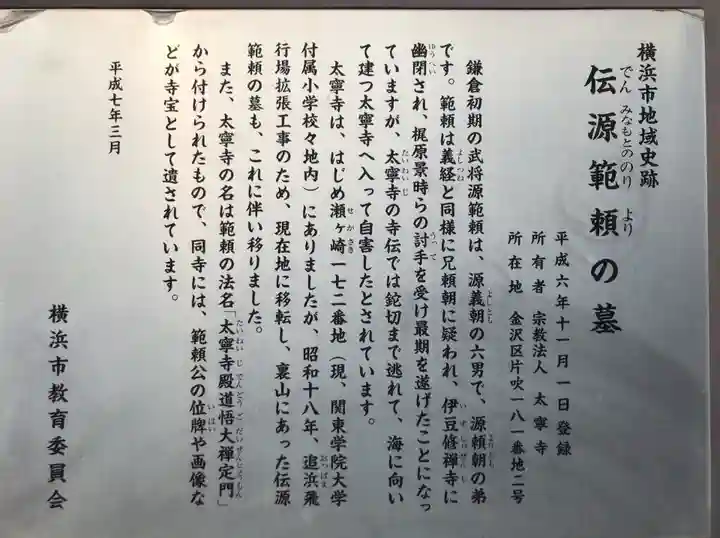 横浜市地域史跡
伝源範頼の墓
でん みなもとののり より
平成六年十一月一日登録
所有者 宗教法人 太寧寺
所在地 金沢区片吹一八一番地二号
鎌倉初期の武将源範頼は、源義朝の六男で、源頼朝の弟
です。範頼は義経と同様に兄頼朝に疑われ、伊豆修禅寺に
幽閉され、梶原景時らの討手を受け最期を遂げたことになっ
ていますが、太寧寺の寺伝では鉈切まで逃れて、海に向い
て建つ太寧寺へ入って自害したとされています。
太寧寺は、はじめ瀬ヶ崎一七二番地（現、関東学院大学
付属小学校々地内）にありましたが、昭和十八年、追浜飛
行場拡張工事のため、現在地に移転し、裏山にあった伝源
範頼の墓も、これに伴い移りました。
また、太寧寺の名は範頼の法名「太寧寺殿道悟大禅定門」
から付けられたもので、同寺には、範頼公の位牌や画像な
どが寺宝として遺されています。
平成七年三月
横浜市教育委員会